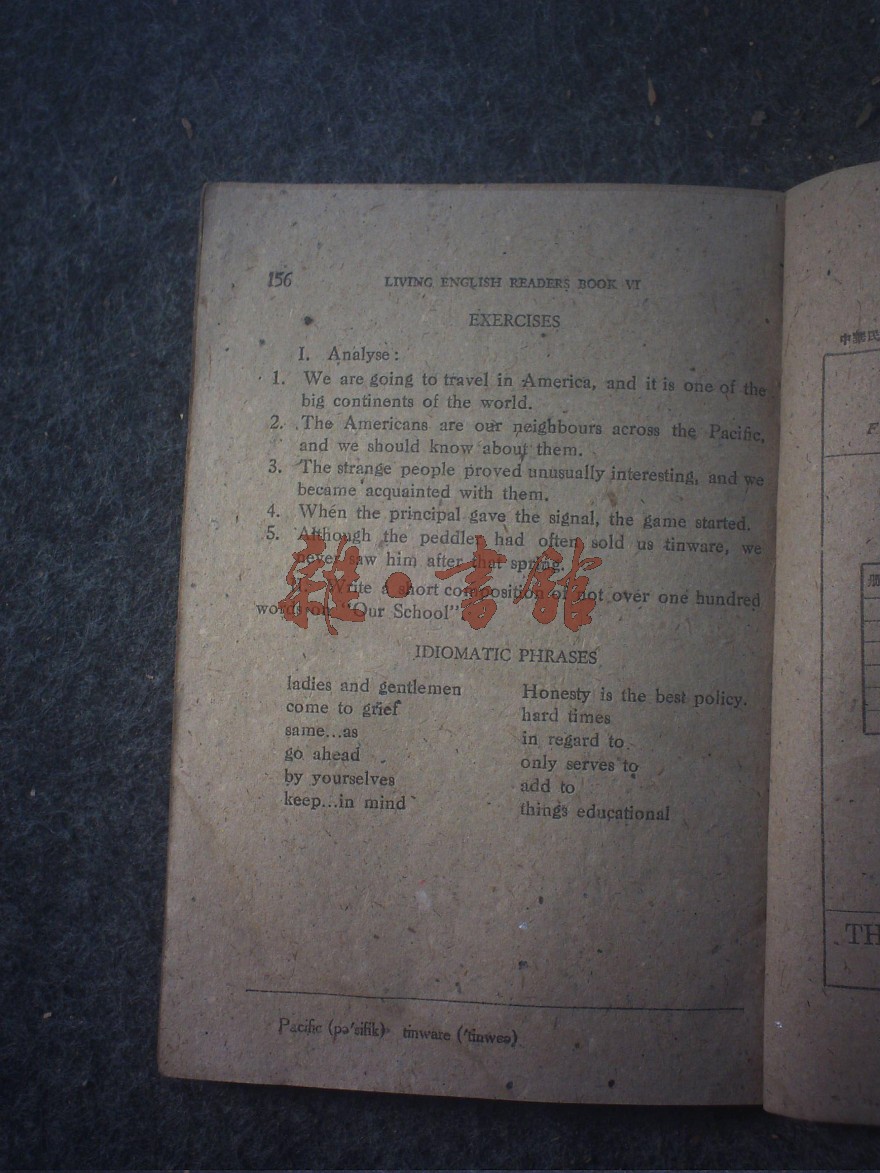 156 LIVING ENGLISH READERS BOOK VI
EXERCISES
I. Analyse:
1. We are going to travel in America, and it is one of the
big continents of the world.
2. The Americans are our neighbours across the Pacific,
and we should know about them.
3. The strange people proved unusually interesting, and we
became acquainted with them.
4. When the principal gave the signal, the game started.
5. Although the peddler had often sold us tinware, we
never saw him after that spring.
II. Write a short composition of not over one hundred
words on "Our School"
雜·書館
IDIOMATIC PHRASES
ladies and gentlemen
come to grief
same...as
go ahead
by yourselves
keep...in mind
Honesty is the best policy.
hard times
in regard to
only serves to
add to
things educational
Pacific (pə'sifik) tinware ('tinweə)
中華民
E
册
TH